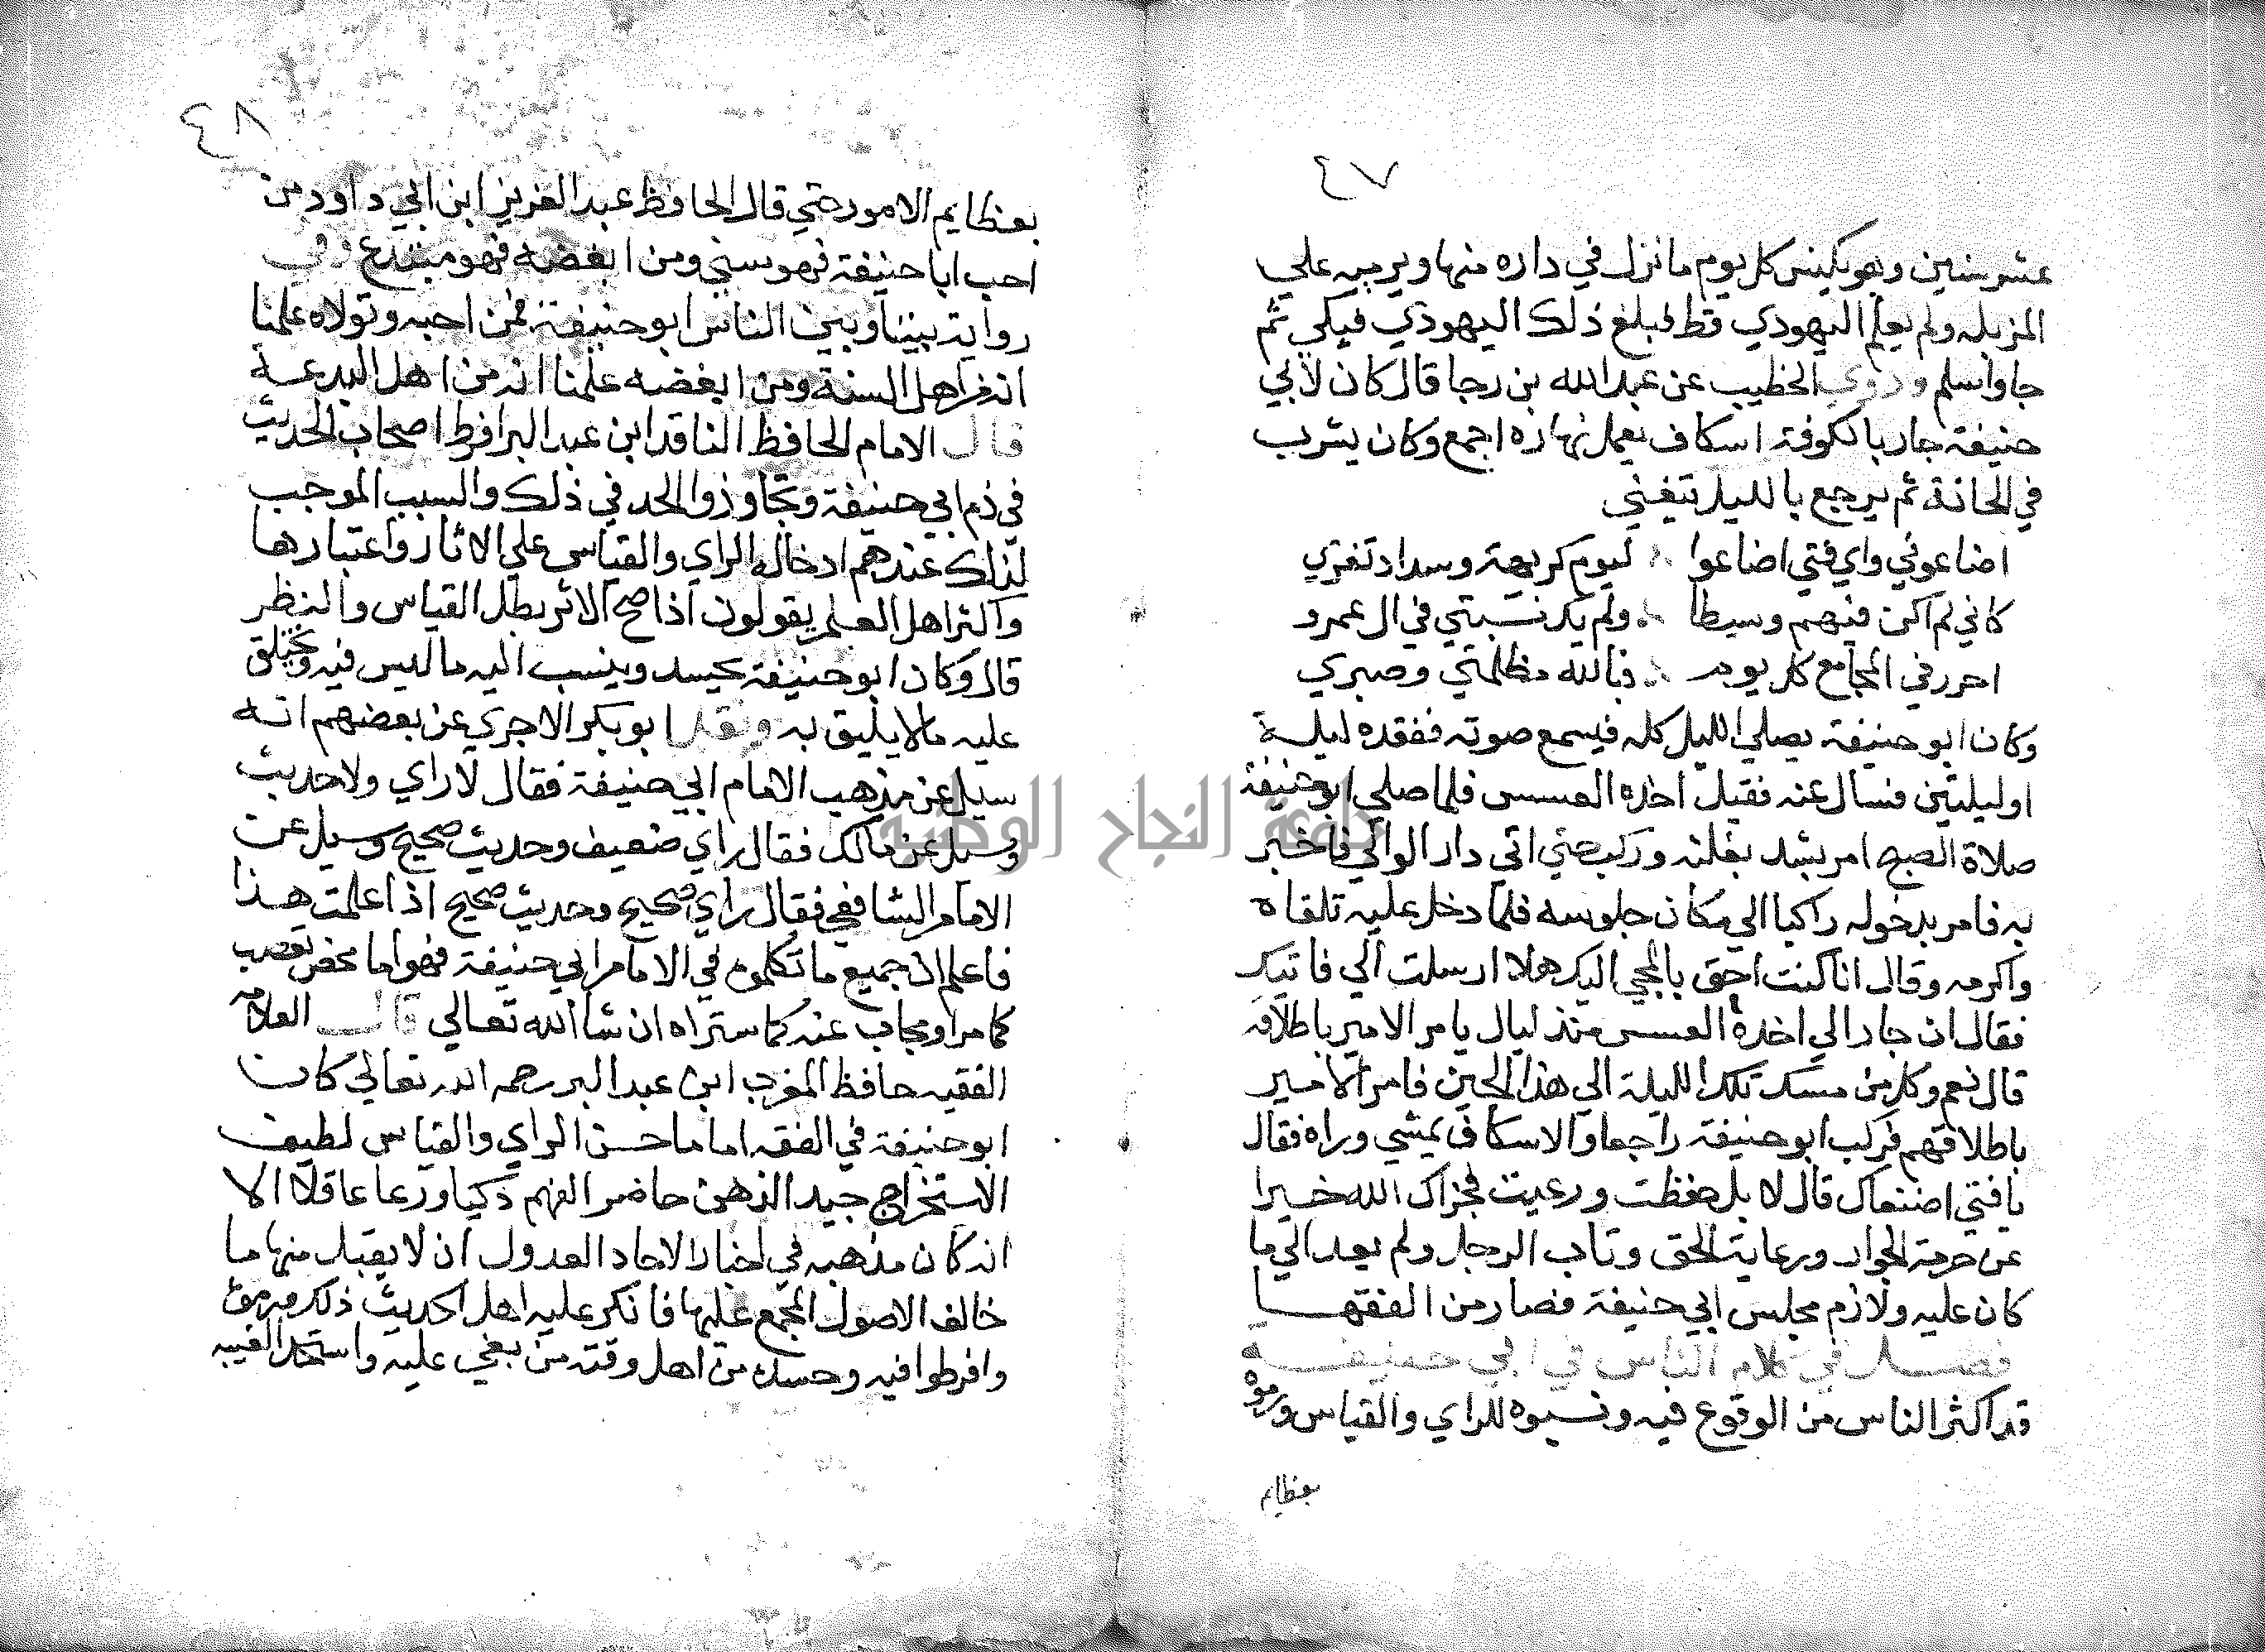 ٤٧
عشر سنين وهو يكنس كل يوم ما نزل في داره منها ويرميه علي
المزبله ولم يعلم اليهودي قط فبلغ ذلك اليهودي فبكي ثم
جا واسلم وروي الخطيب عن عبد الله بن رجا قال كان لابي
حنيفة جار بالكوفة اسكاف يعمل نهاره اجمع وكان يشرب
في الحانة ثم يرجع بالليل يتغني
اضاعوني واي فتي اضاعوا ليوم كريهة وسداد تغري
كاني لم اكن فيهم وسيطا ولم يك نسبتي في ال عمرو
احرر في المجامع كل يوم فيالله مظلمتي وصبري
وكان ابو حنيفة يصلي الليل كله فيسمع صوته ففقده ليلة
او ليلتين فسال عنه فقيل اخذه العسس فلما صلي ابو حنيفة
صلاة الصبح امر بشد بغلته وركب حتي اتي دار الوالي فاخبر
به فامر بدخوله راكبا الي مكان جلوسه فلما دخل عليه تلقاه
واكرمه وقال انا كنت احق بالمجي اليك هلا ارسلت الي فاتيك
فقال ان جارا لي اخذه العسس منذ ليال يامر الامير باطلاقه
قال نعم وكل من مسك تلك الليلة الي هذا الحين فامر الامير
باطلاقهم فركب ابو حنيفة راجعا والاسكاف يمشي وراه فقال
يا فتي اضعناك قال لا بل حفظت ورعيت فجزاك الله خيرا
عن حرمة الجوار ورعاية الحق وتاب الرجل ولم يعد الي ما
كان عليه ولازم مجلس ابي حنيفة فصار من الفقها
فصل في كلام الناس في ابي حنيفة
قد اكثر الناس من الوقوع فيه ونسبوه للراي والقياس ورموه
بعظايم
٤٨
بعظايم الامور حتي قال الحافظ عبد العزيز ابن ابي داود من
احب ابا حنيفة فهو سني ومن ابغضه فهو مبتدع وفي
رواية بيننا وبين الناس ابو حنيفة فمن احبه وتولاه علمنا
انه من اهل السنة ومن ابغضه علمنا انه من اهل البدعة
قال الامام الحافظ الناقد ابن عبد البر افرط اصحاب الحديث
في ذم ابي حنيفة وتجاوزوا الحد في ذلك والسبب الموجب
لذلك عندهم ادخاله الراي والقياس علي الاثار واعتبارها
واكثر اهل العلم يقولون اذا صح الاثر بطل القياس والنظر
قال وكان ابو حنيفة يحسد وينسب اليه ما ليس فيه ويختلق
عليه ما لا يليق به ونقل ابو بكر الاجري عن بعضهم انه
سيل عن مذهب الامام ابي حنيفة فقال لا راي ولا حديث
وسيل عن مالك فقال راي ضعيف وحديث صحيح وسيل عن
الامام الشافعي فقال راي صحيح وحديث صحيح اذا علمت هذا
فاعلم ان جميع ما تكلموه في الامام ابي حنيفة فهو اما محض تعصب
كما مر او مجاب عنه كما ستراه ان شا الله تعالي قال العلامه
الفقيه حافظ المغرب ابن عبد البر رحمه الله تعالي كان
ابو حنيفة في الفقه اماما حسن الراي والقياس لطيف
الاستخراج جيد الذهن حاضر الفهم ذكيا ورعا عاقلا الا
انه كان مذهبه في اخبار الاحاد العدول ان لا يقبل منها ما
خالف الاصول المجمع عليها فانكر عليه اهل الحديث ذلك
وافرطوا فيه وحسده من اهل وقته من بغي عليه واستحل الغيبه